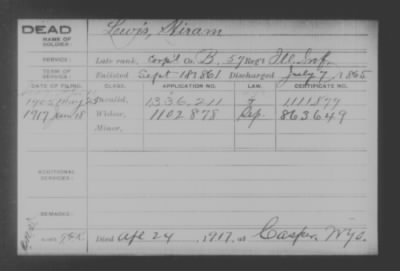 DEAD
NAME OF SOLDIER: Lewis, Hiram
SERVICE: Late rank, Corp'l Co. B, 57 Reg't Ill. Inf.
TERM OF SERVICE: Enlisted Sept 18 1861 Discharged July 7, 1865
DATE OF FILING. CLASS. APPLICATION NO. LAW. CERTIFICATE NO.
1905 May 23 Invalid, 1336,211 1111877
1917 Widow, 1102878 863649
Minor,
ADDITIONAL SERVICES:
REMARKS:
Died Apl 24, 1917, at Casper, Wyo.